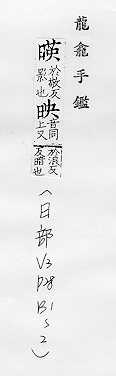 龍龕手鑑
暎於敬反影也映音同上又於浪反暗也
(日部 V3 P28 B1 S2)